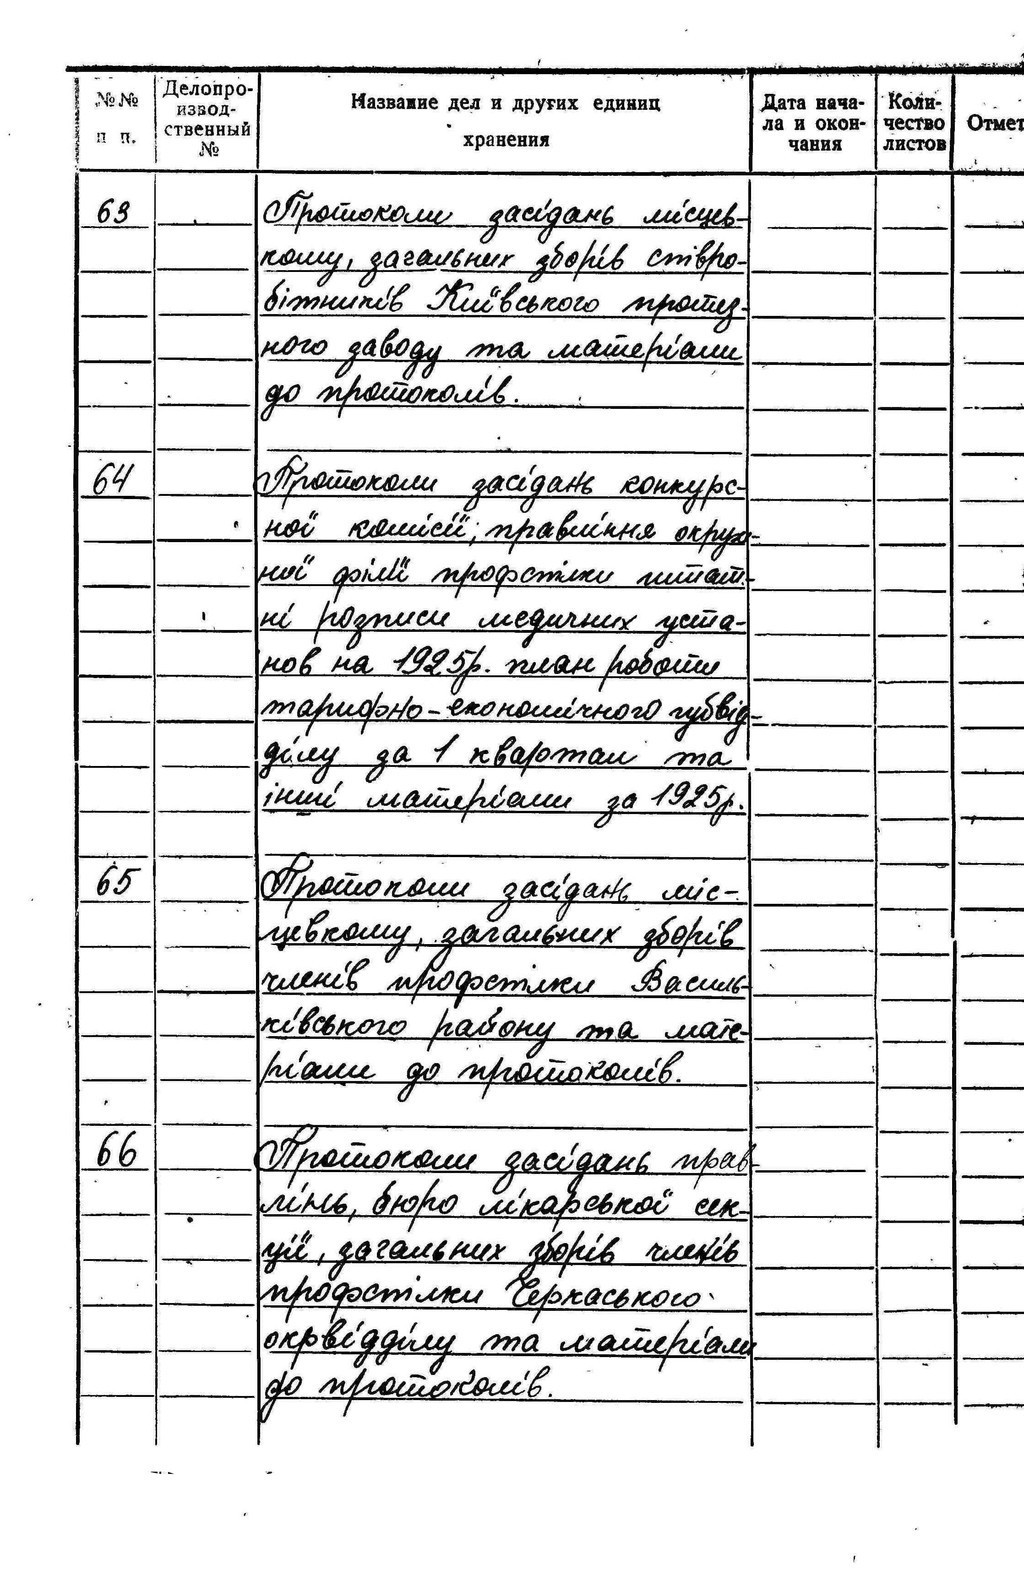 №№ п п.
Делопроизвод-
ственный №
Название дел и других единиц
хранения
Дата нача-
ла и окон-
чания
Коли-
чество
листов
Отмет
63 Протоколи засідань місцев-
кому, загальних зборів співро-
бітників Київського протез-
ного заводу та матеріали
до протоколів.
64 Протоколи засідань конкурс-
ної комісії, правління окруж-
ної філії профспілки штат-
ні розписи медичних уста-
нов на 1925р. план роботи
тарифно-економічного губвід-
ділу за 1 квартал та
інші матеріали за 1925р.
65 Протоколи засідань міс-
цевкому, загальних зборів
членів профспілки Василь-
ківського району та мате-
ріали до протоколів.
66 Протоколи засідань прав-
лінь, бюро лікарської сек-
ції, загальних зборів членів
профспілки Черкаського
окрвідділу та матеріали
до протоколів.